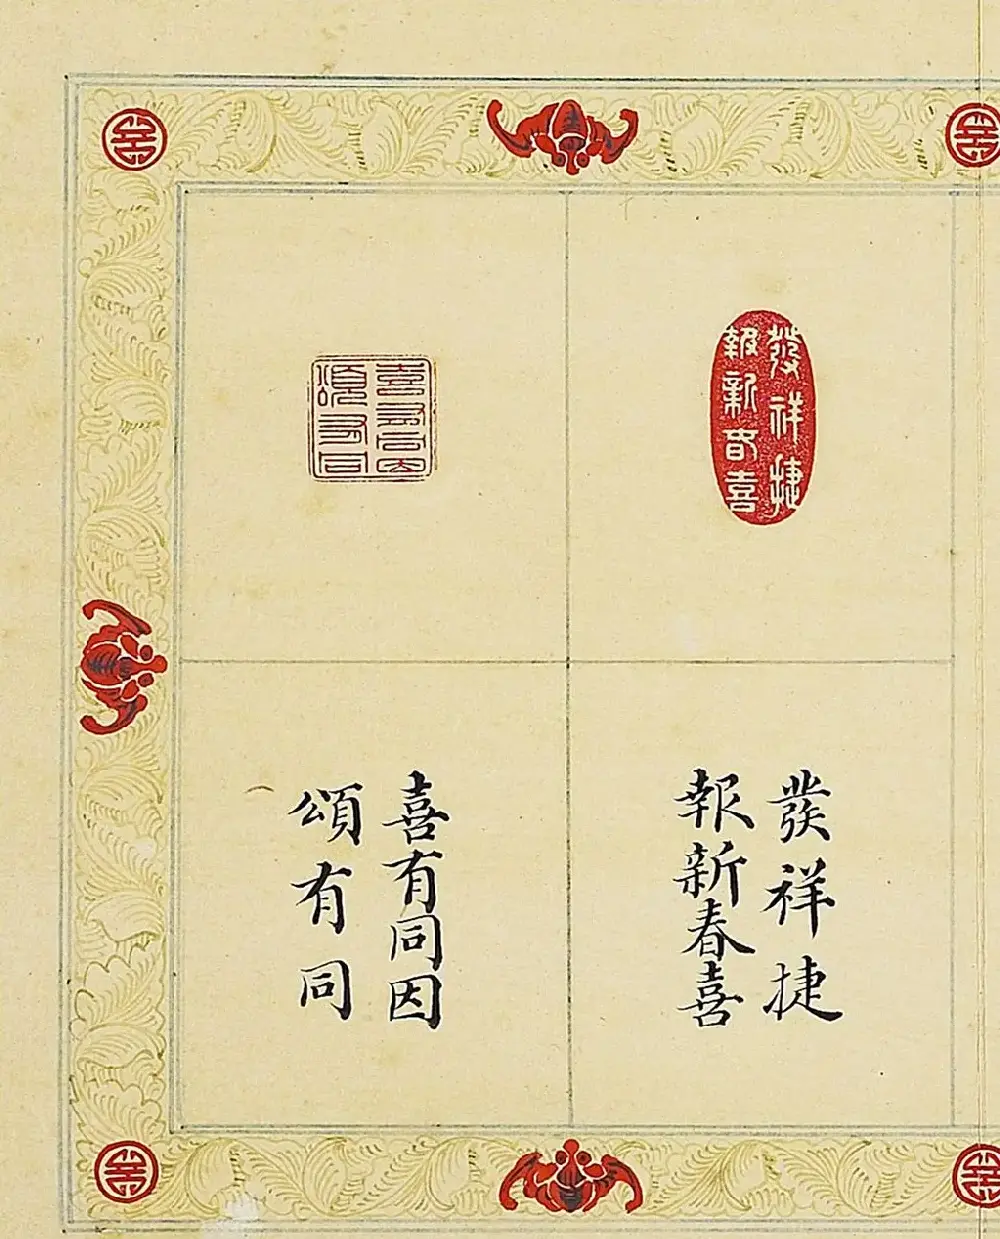 發祥捷
報新春喜
喜有同因
頌有同
發祥捷
報新春喜
喜有同因
頌有同